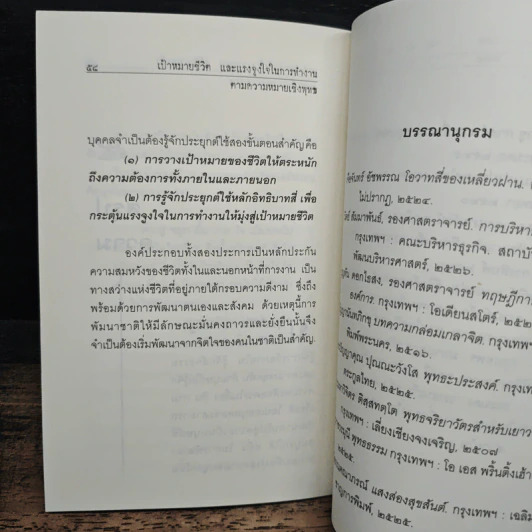 ๕๔ เป้าหมายชีวิต และแรงจูงใจในการทำงาน
ตามความหมายเชิงพุทธ
บุคคลจำเป็นต้องรู้จักประยุกต์ใช้สองขั้นตอนสำคัญคือ
(๑) การวางเป้าหมายของชีวิตให้ตระหนัก
ถึงความต้องการทั้งภายในและภายนอก
(๒) การรู้จักประยุกต์ใช้หลักอิทธิบาทสี่ เพื่อ
กระตุ้นแรงจูงใจในการทำงานให้มุ่งสู่เป้าหมายชีวิต
องค์ประกอบทั้งสองประการเป็นหลักประกัน
ความสมหวังของชีวิตทั้งในและนอกหน้าที่การงาน เป็น
ทางสว่างแห่งชีวิตที่อยู่ภายใต้กรอบความดีงาม ซึ่งถึง
พร้อมด้วยการพัฒนาตนเองและสังคม ด้วยเหตุนี้การ
พัฒนาชาติให้มีลักษณะมั่นคงถาวรและยั่งยืนนั้นจึง
จำเป็นต้องเริ่มพัฒนาจากจิตใจของคนในชาติเป็นสำคัญ
บรรณานุกรม
อัชพรรณ โอวาทสี่ของเหลี่ยวฝาน
ไม่ปรากฏ, ๒๕๒๔.
สัมมาพันธ์, รองศาสตราจารย์. การบริหาร
กรุงเทพฯ : คณะบริหารธุรกิจ. สถาบั
พัฒนบริหารศาสตร์, ๒๕๒๖.
ดอกไธสง, รองศาสตราจารย์ ทฤษฎีการ
องค์การ. กรุงเทพฯ : โอเดียนสโตร์, ๒๕๒
บทความกล่อมเกลาจิต. กรุงเทพ
พิมพ์พระนคร, ๒๕๑๖.
ปุณณะวังโส พุทธะประสงค์. กรุงเท
ตระกูลไทย, ๒๕๒๕.
ติสฺสทตฺโต พุทธจริยาวัตรสำหรับเยาว
กรุงเทพฯ : เลี่ยงเชียงจงเจริญ, ๒๕๐๗
พุทธธรรม กรุงเทพฯ : โอ เอส พริ้นติ้งเฮ้า
๒๕๒๕
แสงส่องสุขสันต์. กรุงเทพฯ : เฉลิม
ชาญการพิมพ์, ๒๕๒๕.